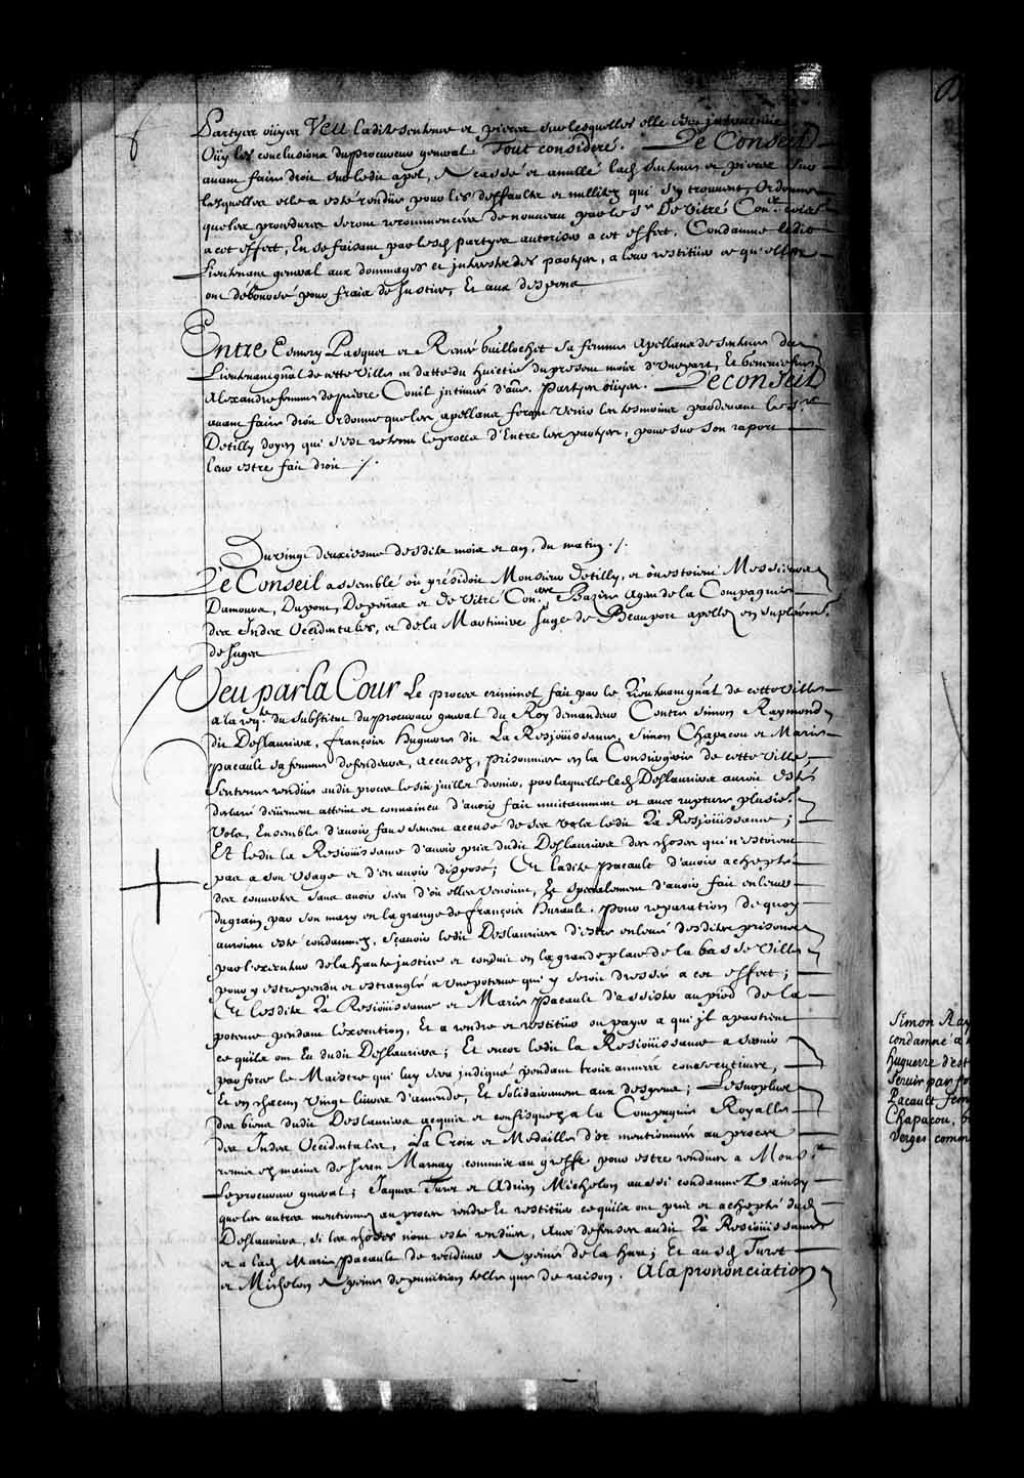 Partyes oüyes Veu ladite sentence et pieces sur lesquelles elle est intervenüe
Oüy les conclusions du procureur general Tout considéré. Le Conseil
avant faire droit sur ledit apel, A cassé et annullé lad. sentence et pieces sur
lesquelles elle a esté rendüe pour les deffaults et nullitez qui s'y trouvent, Ordonne
que les procedures seront recommencées de nouveau par le Sr De Vitré Conr
a cet effect, En se faisant par lesd. partyes autoriser a cet effect. Condamne ledit
Lieutenant general aux dommages et interests des partyes, a leur restituer ce qu'elles
ont déboursé pour fraix de Justice, Et aux despens
Entre Esmery Pasquet et Renée Guillochet sa femme Apellans de sentence du
Lieutenant gñal de cette Ville en datte du huictie du present mois d'une part, Et
Alexandre femme de pierre intimée d'autre. Partyes oüyes. Le Conseil
avant faire droit Ordonne que les apellans feront venir les tesmoins pardevant le Sr
De tilly doyen qui s'est retenu le procès d'Entre les partyes, pour sur son raport
leur estre fait droit ./.
Du vingt deuxiesme desdits mois et an, du matin ./.
Le Conseil assemblé où présidoit Monsieur de tilly, et où estoient Messieurs
Damours, Dupont, De peiras et de Vitré Conrs Bazire agent de la Compagnie
des Indes Occidentales, et de la Martiniere Juge de Beauport apellez en suplément
de Juges
Veu par la Cour Le proces criminel fait par le Lieutenant gñal de cette Ville
a la reqte du Substitut du procureur general du Roy demandeur Contre Simon Raymond
dit Deslauriers, françois huguerre dit La Resjoüissance, Simon Chapacou et Marie
pacault sa femme defendeurs, accusez, prisonniers en la Conciergerie de cette ville,
Sentence rendüe audit proces le six juillet dernier, par laquelle led. Deslauriers auroit esté
declaré deüement atteint et convaincu d'avoir fait nuitamment et avec rupture plusie.rs
Vols, Ensemble d'avoir faussement accusé de ses vols ledit La Resjoüissance;
Et ledit la Resjoüissance d'avoir pris dudit Deslauriers des choses qui n'estoient
pas a son Usage et d'en avoir disposé; Et ladite pacault d'avoir achepté
des couvertes sans avoir sceu d'où elles venoient, Et specialement d'avoir fait enlever
du grain par son mary en la grange de françois huraule. Pour reparation de quoy
auroient esté condamnez, Sçavoir ledit Deslauriers d'estre enlevé desdites prisons
par l'executeur de la haute justice et conduit en la grande place de la basse Ville
pour y estre pendu et estranglé a Une potence qui y seroit dressée a cet effect;
Et lesdits La Resjoüissance et Marie Pacault d'assister au pied de la
potence pendant l'execution, Et a rendre et restitüer ou payer a qui jl apartient
ce quils ont Eu dudit Deslauriers; Et encor ledit la Resjoüissance a servir
par force le Maistre qui luy sera indiqué pendant trois années consecutives,
Et en chacun vingt livres d'amende, Et solidairement aux despens; Le surplus
des biens dudit Deslauriers acquis et confisquez a la Compagnie Royalle
des Indes Occidentales, La Croix et Medailles d'or mentionnées au proces
remis es mains de Jean Marnay commis au greffe pour estre rendües a Monsr
le procureur general; Jaques Turet et Adrien Michelon aussi condamnez ainsy
que les autres mentionnez au proces rendre Et restitüer ce quils ont pris et achepté dud.
Deslauriers, si les choses n'ont esté rendües, Avec defenses audit La Resjoüissance
et a lad. Marie Pacault de recidiver A peine de la hart; Et ausd. Turet
et Michelon A peine de punition telle que de raison. A la prononciation
Simon Ray
condamné a
huguerre d'est
servir par fo
Pacault fem
Chapacou,
verges comm